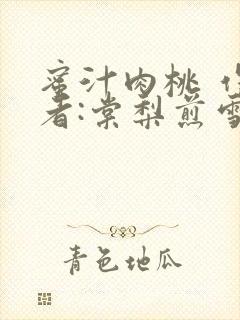 蜜汁肉桃 作
者:棠梨煎雪
青色地瓜